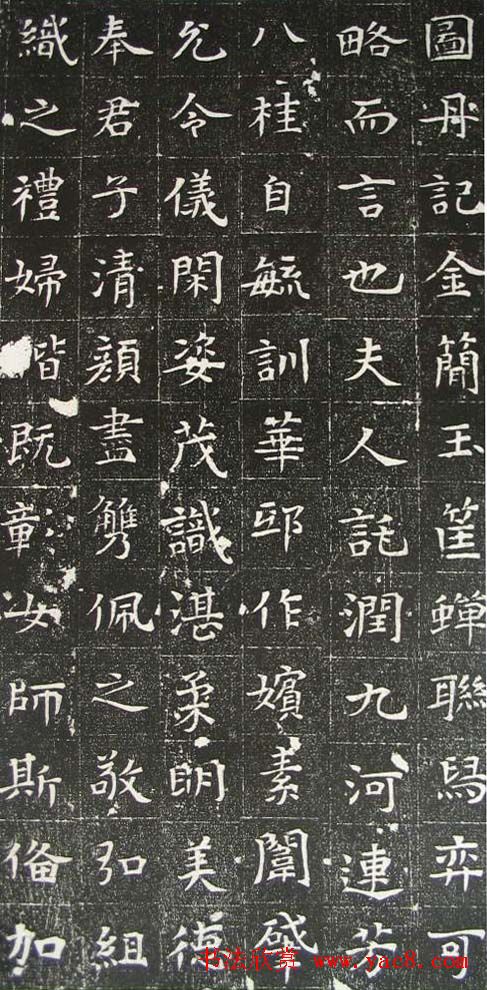 圖丹記金簡玉筐蟬聯舄弈可
略而言也夫人託潤九河連芳
八桂自毓訓華邛作嬪素闈
允令儀閑姿茂識湛柔明美德
奉君子清顏盡觹佩之敬弘組
織之禮婦既彰女師斯俻加
书法欣赏 www.yac8.com